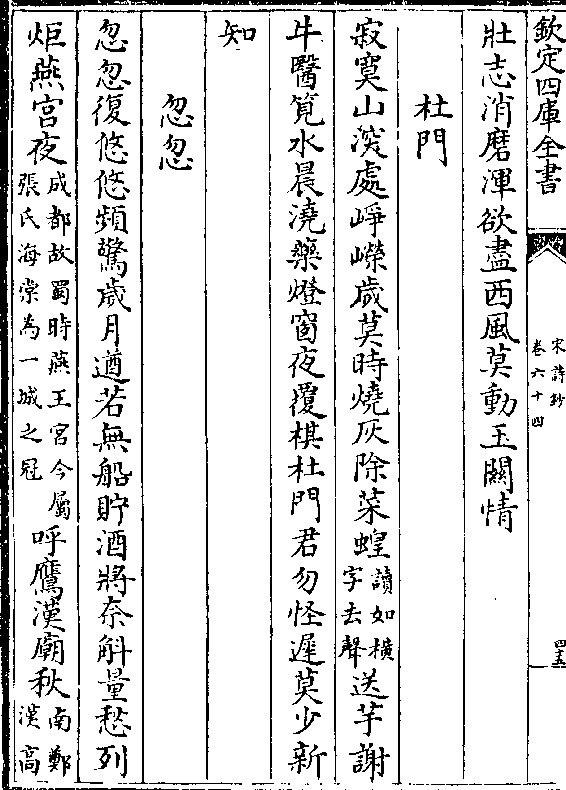 欽定四庫全書
宋詩鈔
卷六十四
四五
壯志消磨渾欲盡西風莫動玉關情
杜門
寂寞山深處崢嶸歲莫時燒灰除菜蝗讀如橫字去聲送芋謝
牛醫筧水晨澆藥燈窗夜覆棋杜門君勿怪遲莫少新
知
忽忽
忽忽復悠悠頻驚歲月遒若無船貯酒將奈斛量愁列
炬燕宮夜成都故蜀時燕王宮今屬張氏海棠為一城之冠呼鷹漢廟秋南鄭漢高